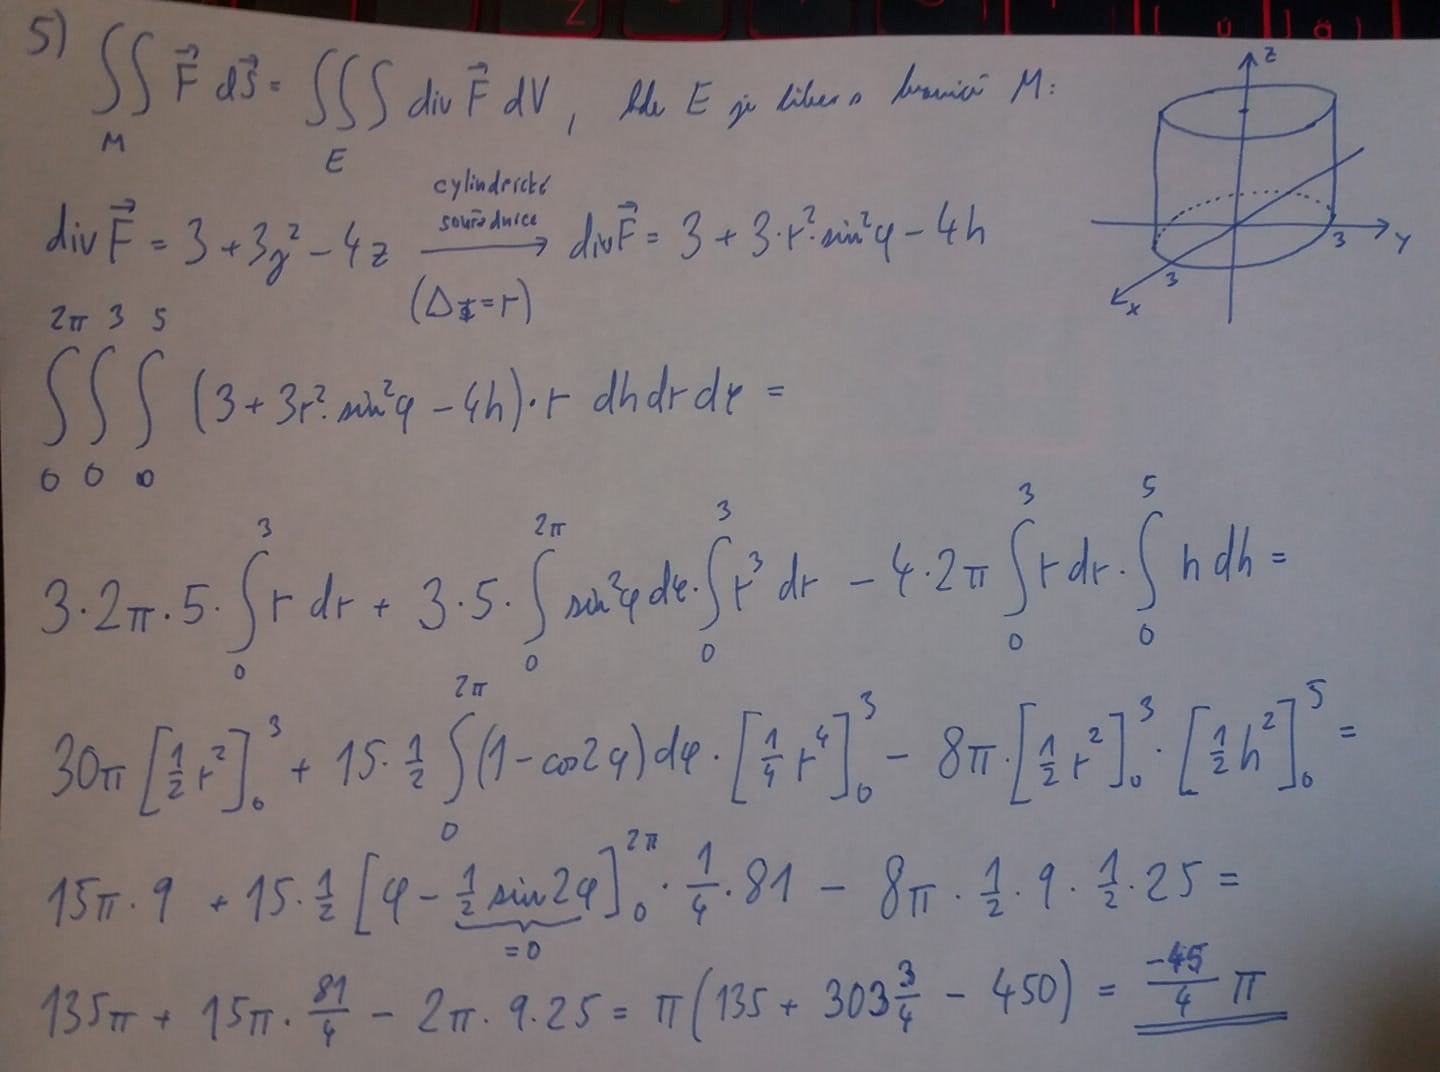 5) ∬_M F⃗ dS⃗ = ∭_E div F⃗ dV, kde E je těleso s hranicí M:
z
y
x
3
3
div F⃗ = 3 + 3y² - 4z cylindrické souřadnice (Δ = r) → div F⃗ = 3 + 3·r²·sin²φ - 4h
∫_0^{2π} ∫_0^3 ∫_0^5 (3 + 3r²·sin²φ - 4h)·r dh dr dφ =
3·2π·5·∫_0^3 r dr + 3·5·∫_0^{2π} sin²φ dφ·∫_0^3 r³ dr - 4·2π ∫_0^3 r dr·∫_0^5 h dh =
30π [1/2 r²]_0^3 + 15·1/2 ∫_0^{2π} (1 - cos2φ) dφ·[1/4 r⁴]_0^3 - 8π·[1/2 r²]_0^3·[1/2 h²]_0^5 =
15π·9 + 15·1/2 [φ - 1/2 sin2φ]_0^{2π}·1/4·81 - 8π·1/2·9·1/2·25 =
= 0
135π + 15π·81/4 - 2π·9·25 = π(135 + 303 3/4 - 450) = -45/4 π